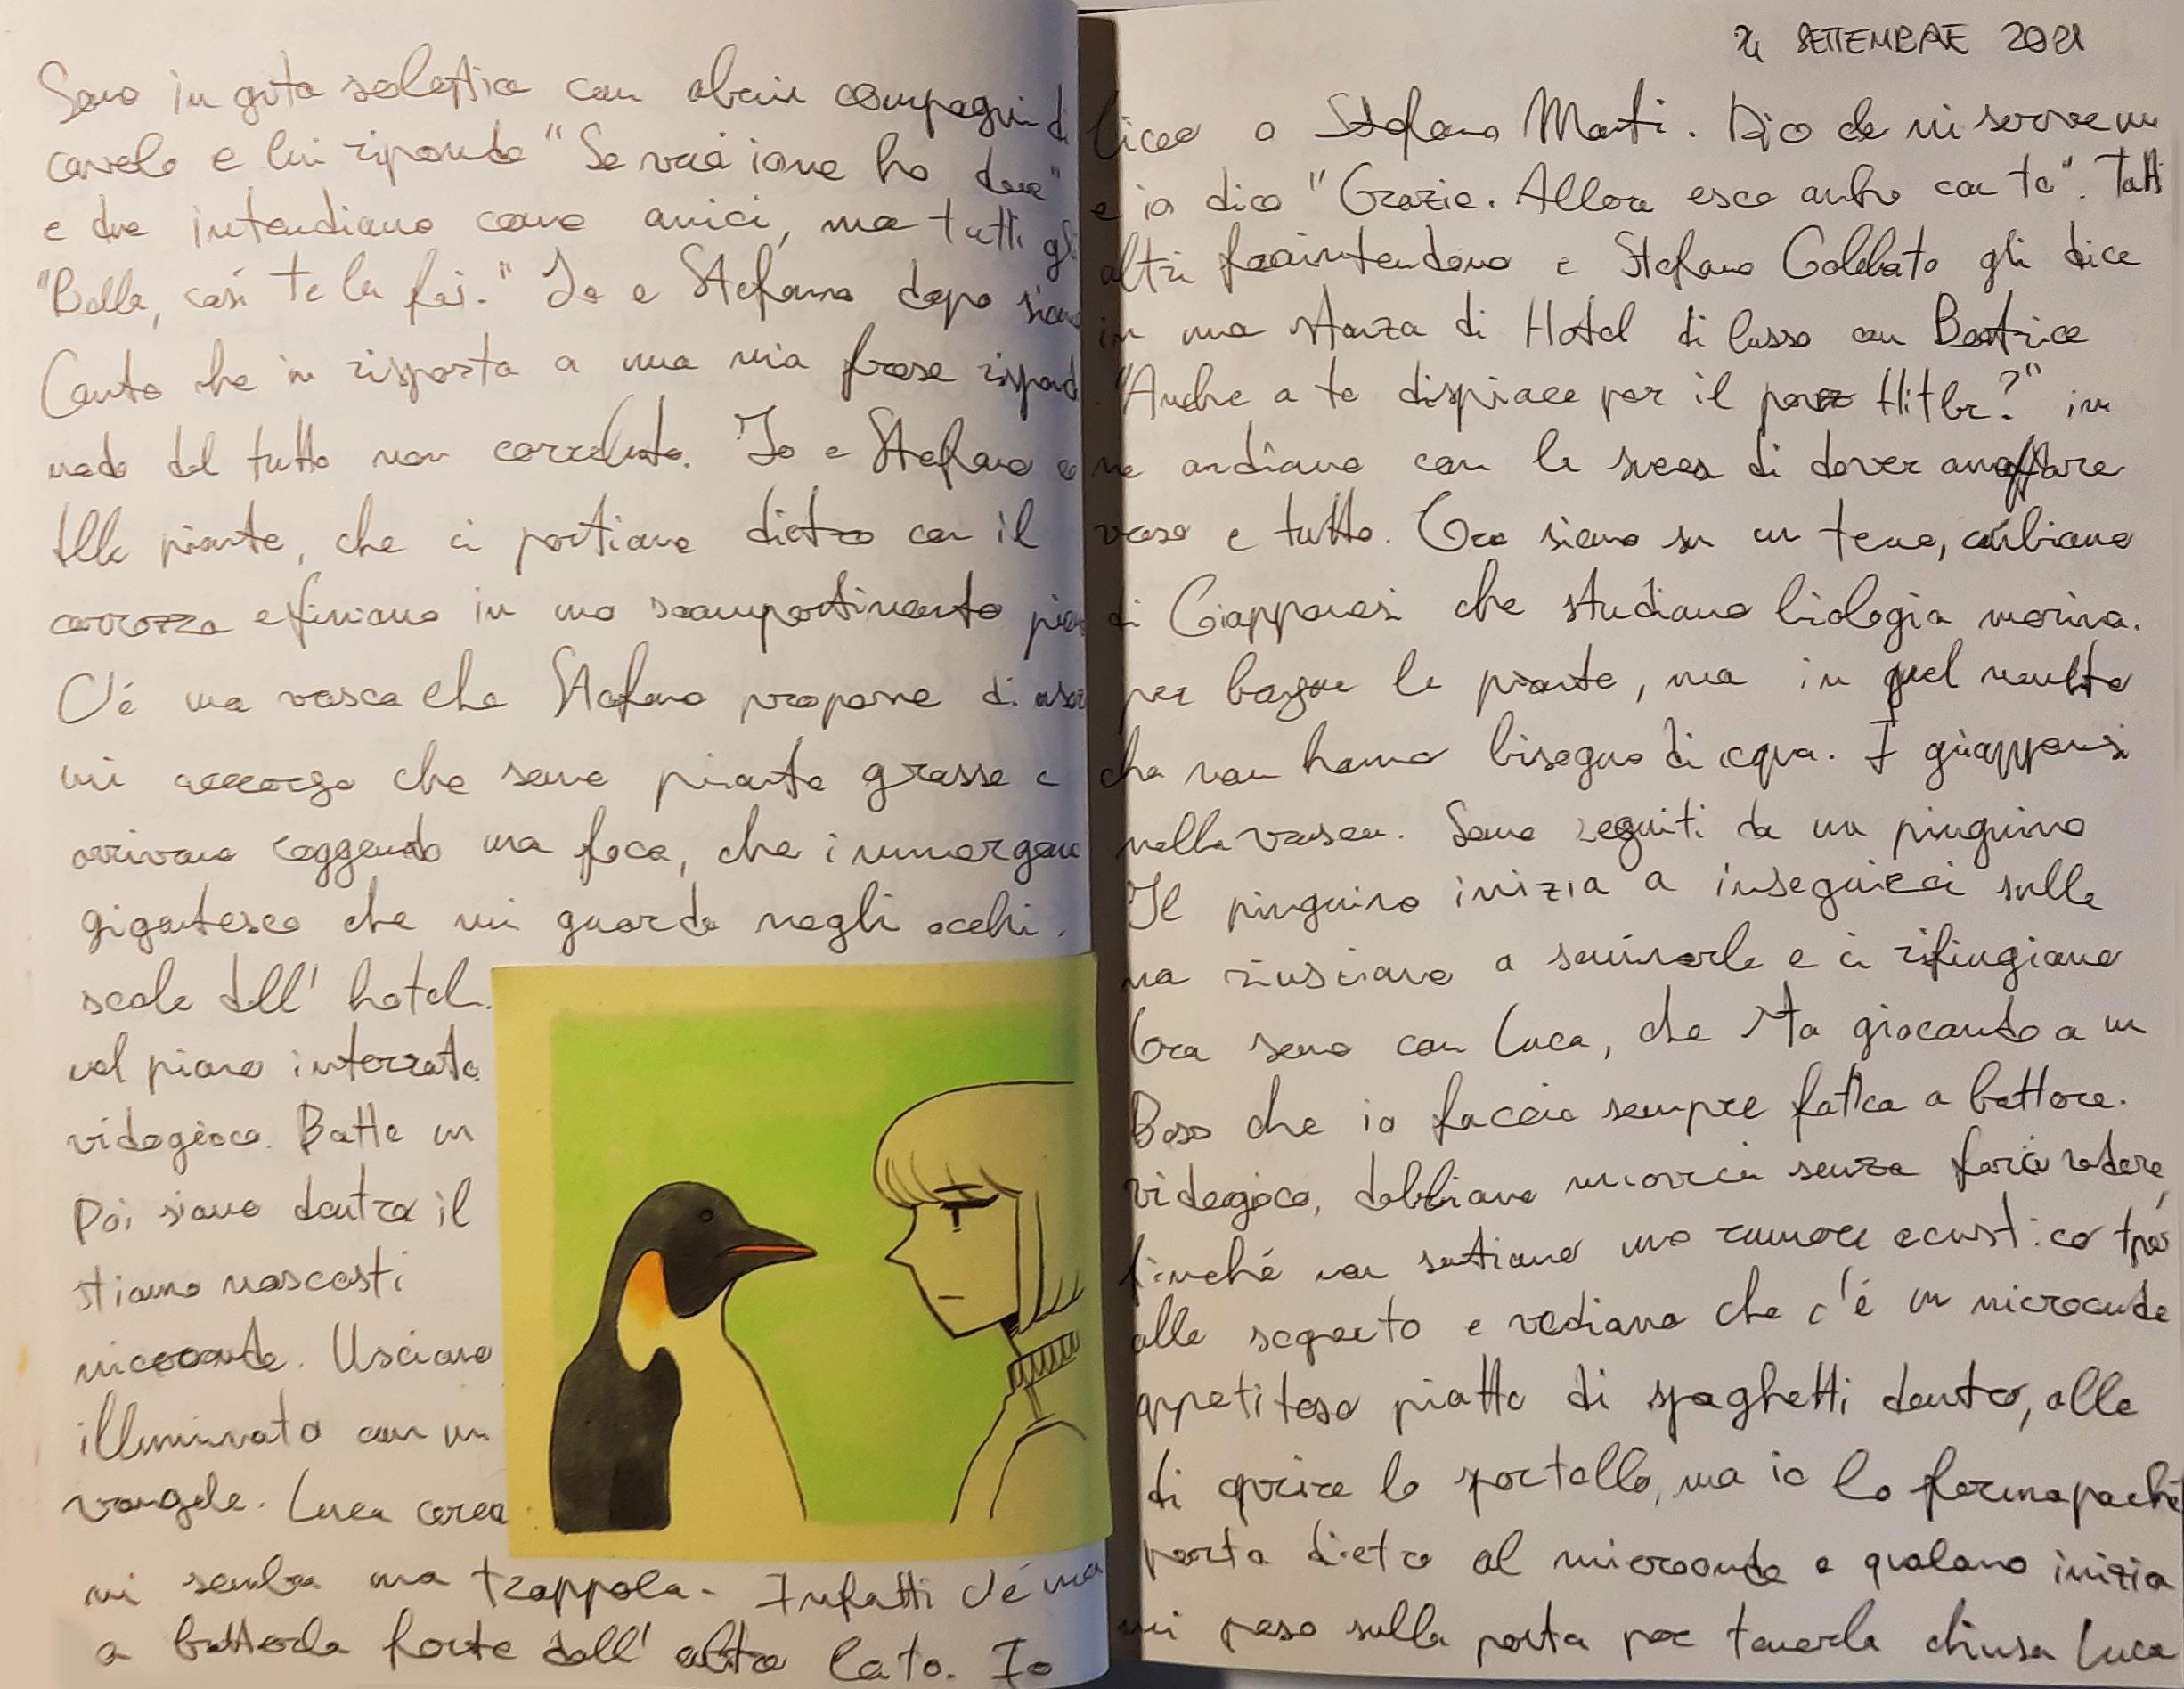 24 SETTEMBRE 2021
Sono in gita scolastica con alcuni compagni di liceo e Stefano Monti. Dico che mi serve un
cavolo e lui risponde "Se vuoi io ne ho due" e io dico "Grazie. Allora esco anche con te". Tutti
e due intendiamo come amici, ma tutti gli altri fraintendono e Stefano gli dice
"Bella, così te la fai." Io e Stefano dopo siamo in una stanza di Hotel di lusso con Beatrice
Canto che in risposta a una mia frase risponde "Anche a te dispiace per il povero Hitler?" in
modo del tutto non correlato. Io e Stefano ce ne andiamo con la scusa di dover annaffiare
delle piante, che ci portiamo dietro con il vaso e tutto. Ora siamo su un treno, cambiamo
carrozza e finiamo in uno scompartimento pieno di Giapponesi che studiano biologia marina.
C'é una vasca che Stefano propone di usare per bagnare le piante, ma in quel momento
mi accorgo che sono piante grasse e che non hanno bisogno di acqua. I giapponesi
arrivano reggendo una foca, che immergono nella vasca. Sono seguiti da un pinguino
gigantesco che mi guarda negli occhi. Il pinguino inizia a inseguirci sulle
scale dell'hotel. ma riusciamo a seminarlo e ci rifugiamo
nel piano interrato. Ora sono con Luca, che sta giocando a un
videogioco. Batte un Boss che io faccio sempre fatica a battere.
Poi siamo dentro il videogioco, dobbiamo muoverci senza farci vedere,
stiamo nascosti finché non sentiamo uno rumore acustico tipo
microonde. Usciamo allo scoperto e vediamo che c'é un microonde
illuminato con un appetitoso piatto di spaghetti dentro, alle
vongole. Luca cerca di aprire lo sportello, ma io lo fermo perché
mi sembra una trappola. Infatti c'é una porta dietro al microonde e qualcuno inizia
a batterla forte dall'altro lato. Io mi peso sulla porta per tenerla chiusa Luca